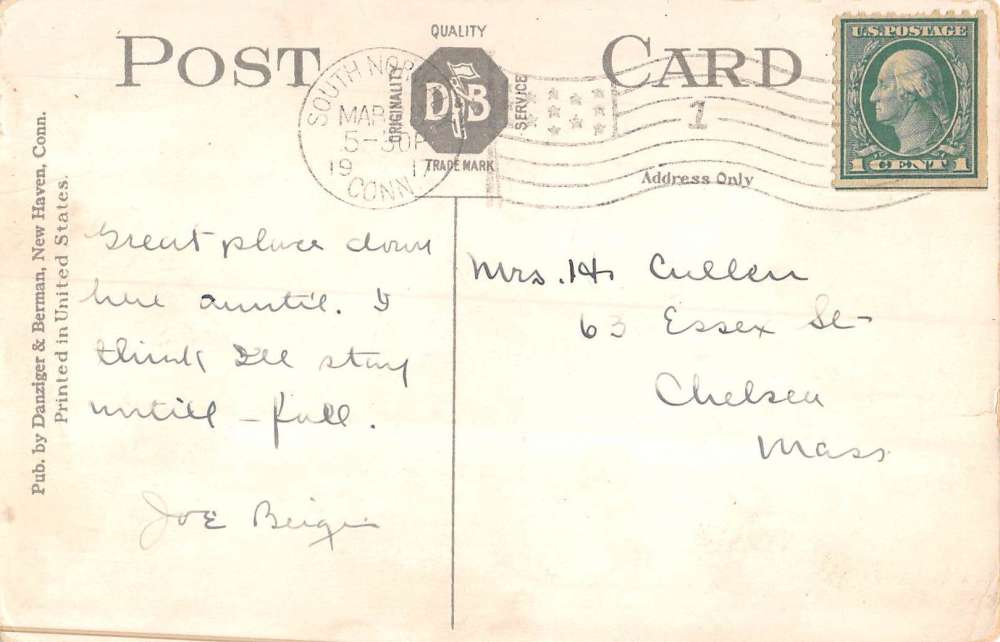 POST CARD
QUALITY
ORIGINALITY
D & B
SERVICE
TRADE MARK
SOUTH NOR
MAR
5-30P
1917
CONN.
1
U.S. POSTAGE
1 CENT 1
Address Only
Pub. by Danziger & Berman, New Haven, Conn.
Printed in United States.
Great place down
here auntie. I
think I'll stay
untill - fall.
Joe
Mrs. H. Cullen
63 Essex St
Chelsea
Mass